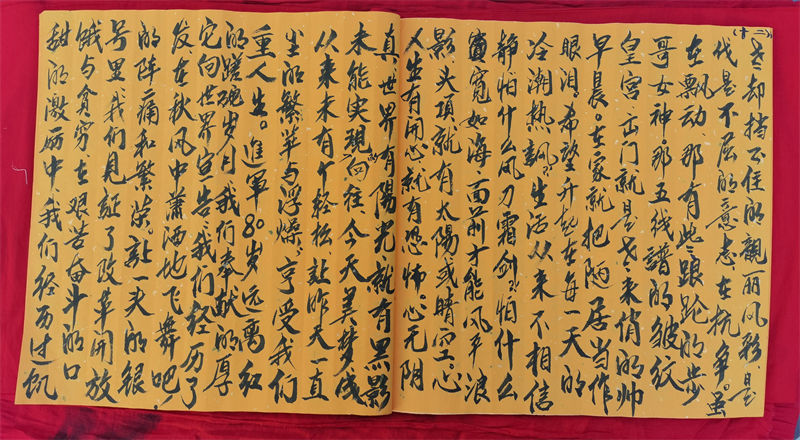 (十二)
老却挡不住的靓丽风彩、是
代是不屈的意志、在抗争。虽
在飘动、那有些踉跄的步
哥女神。那五线谱的皱纹
皇宫、出门就是老来俏的帅
早晨。在家就把陋居当作
眼泪。希望升起在每一天的
冷潮热飘、生活从来不相信
静怕什么风刀霜剑、怕什么
窗宽如海、面前才能风平浪
影、头顶就有太陽或晴空。心
人生有开心就有恐怖。心无阴
真、世界有陽光就有黑影
未能实現的向往、今天美梦成
从来未有个轻松、让昨天一直
尘的繁华与浮燥。享受我们
重人生。進軍80岁、远离红
的蹉跎岁月、我们奉献的厚
它向世界宣告、我们经历了
发在秋风中萧洒地飞舞吧
的阵痛和繁荣、让一头的银
号里、我们見証了改革開放
饿与贪穷、在艰苦奋斗的口
甜的激励中、我们经历过饥